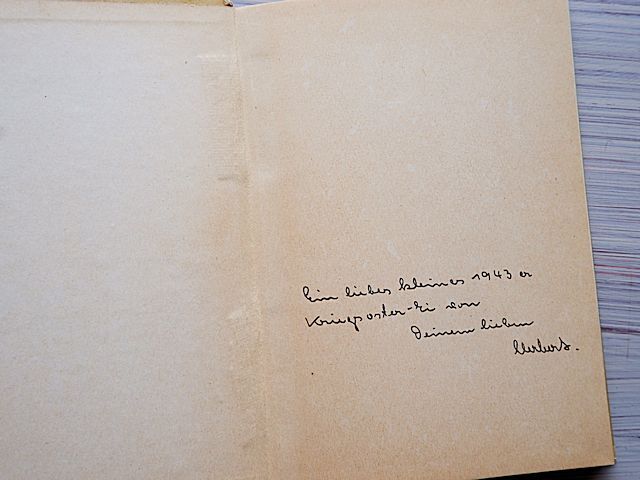 Ein liebes kleines 1943 er
Kriegsoster-Ei von
Deinem lieben
Herbert.